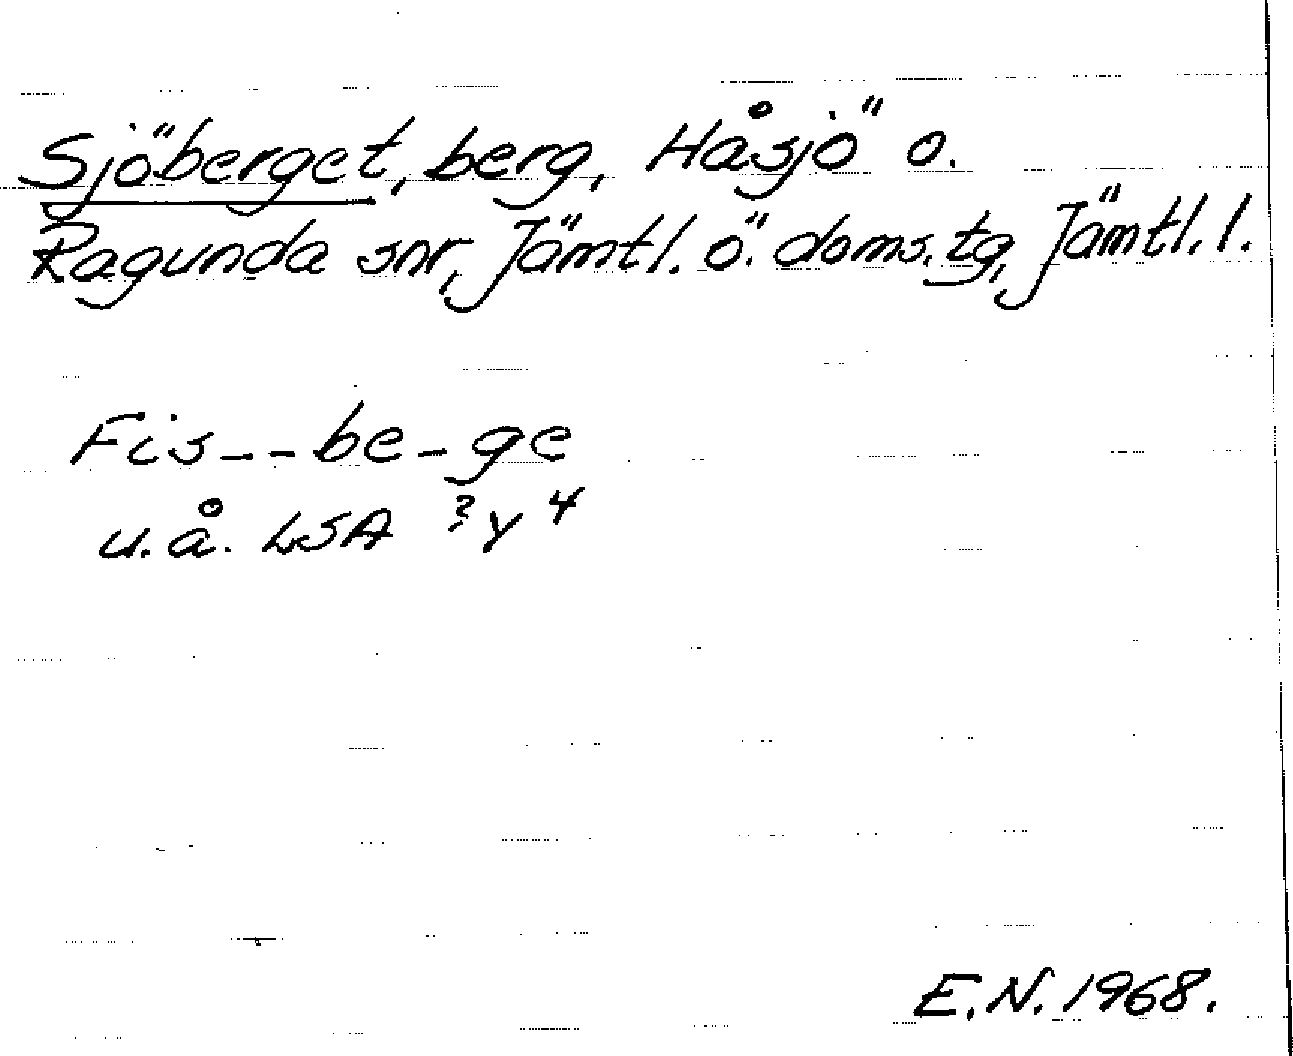 Sjöberget, berg, Håsjö o.
Ragunda snr, Jämtl. ö. doms.tg, Jämtl. l.
Fis--be-ge
u.å. LSA ? y 4
E.N. 1968.